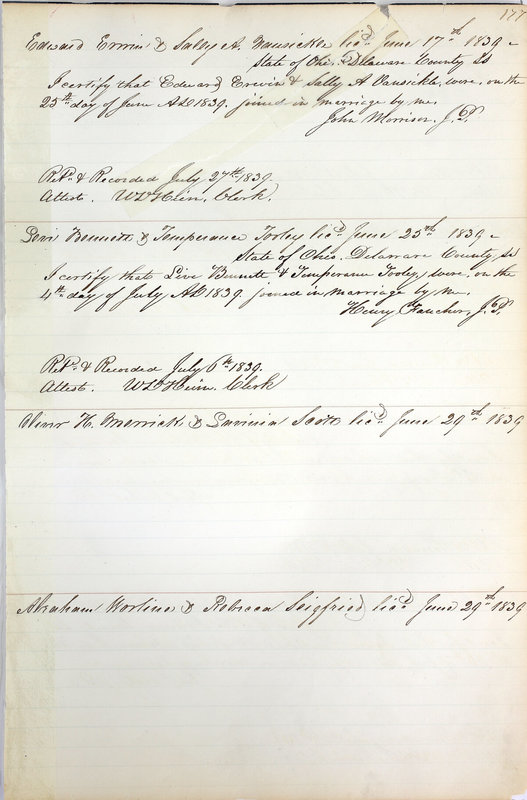 177
Edward Erwin & Sally A. Vansickle lic'd June 17th 1839 -
State of Ohio. Delaware County Ss
I certify that Edward Erwin & Sally A Vansickle, were, on the
25th day of June AD 1839. joined in marriage by me.
John Morrison, J.P.
Ret'd & Recorded July 27th 1839.
Attest. Clerk.
Levi Bennett & Temperance Tooley lic'd June 25th 1839 -
State of Ohio. Delaware County, Ss
I certify that Live Bennett & Temperance Tooley, were, on the
4th day of July, AD 1839. joined in marriage by me,
Henry Fancher, J.P.
Ret'd & Recorded July 6th 1839.
Attest. Clerk
Oliver H. Merrick & Lavinia Scott lic'd June 29th 1839
Abraham Worline & Rebecca Seigfried lic'd June 29th 1839